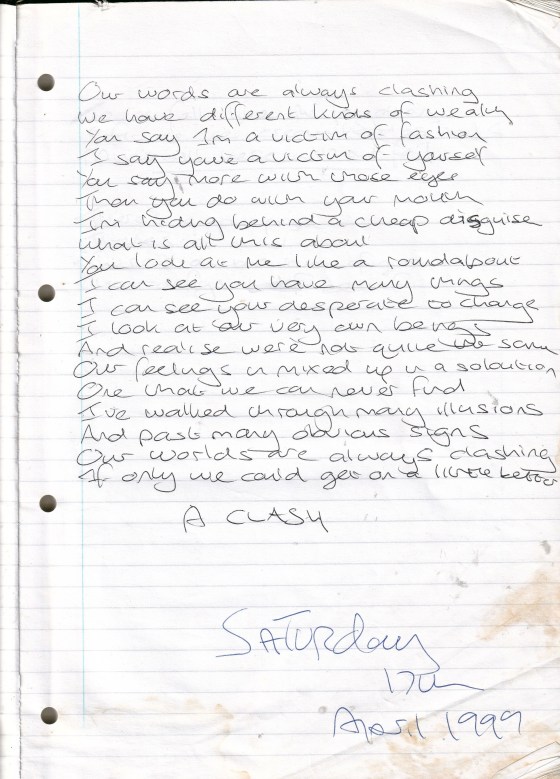 Our words are always clashing
We have different kinds of
You say Im a victim of fashion
I say your a victim of yourself
You say more with those eyes
Then you do with your mouth
I'm hiding behind a cheap disguise
What is all this about
You look at me like a roundabout
I can see you have many things
I can see your desperate to change
I look at our very own beings
And realise were not quite the same
Our feelings in mixed up in a soloution
One that we can never find
I've walked through many illusions
And past many obvious signs
Our worlds are always clashing
If only we could get on a little better
A CLASH
SATURday
17th
April 1999